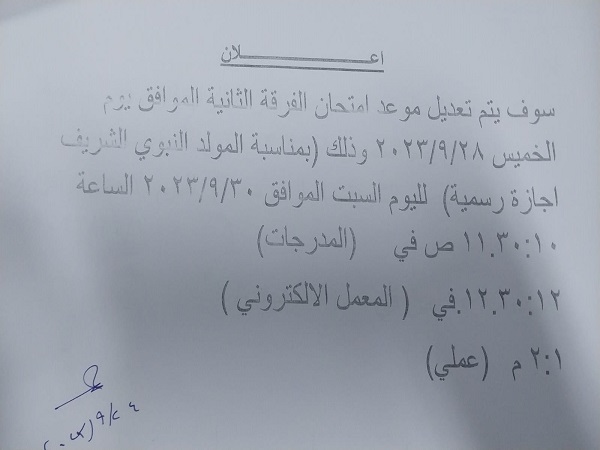 اعـــــــــــلان
سوف يتم تعديل موعد امتحان الفرقة الثانية الموافق يوم
الخميس ٢٠٢٣/٩/٢٨ وذلك (بمناسبة المولد النبوي الشريف
اجازة رسمية) لليوم السبت الموافق ٢٠٢٣/٩/٣٠ الساعة
١١.٣٠:١٠ ص في (المدرجات)
١٢.٣٠:١٢.في ( المعمل الالكتروني )
٢:١ م (عملي)